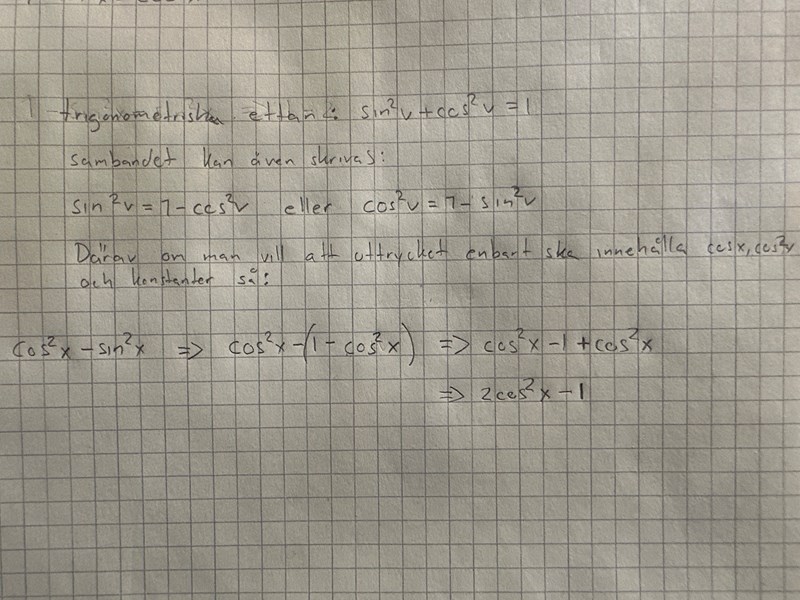 trigonometriska ettan: sin²v + cos²v = 1
sambandet kan även skrivas:
sin²v = 1 - cos²v eller cos²v = 1 - sin²v
Därav om man vill att uttrycket enbart ska innehålla cosx, cos²v
och konstanter så:
cos²x - sin²x => cos²x - (1 - cos²x) => cos²x - 1 + cos²x
=> 2cos²x - 1